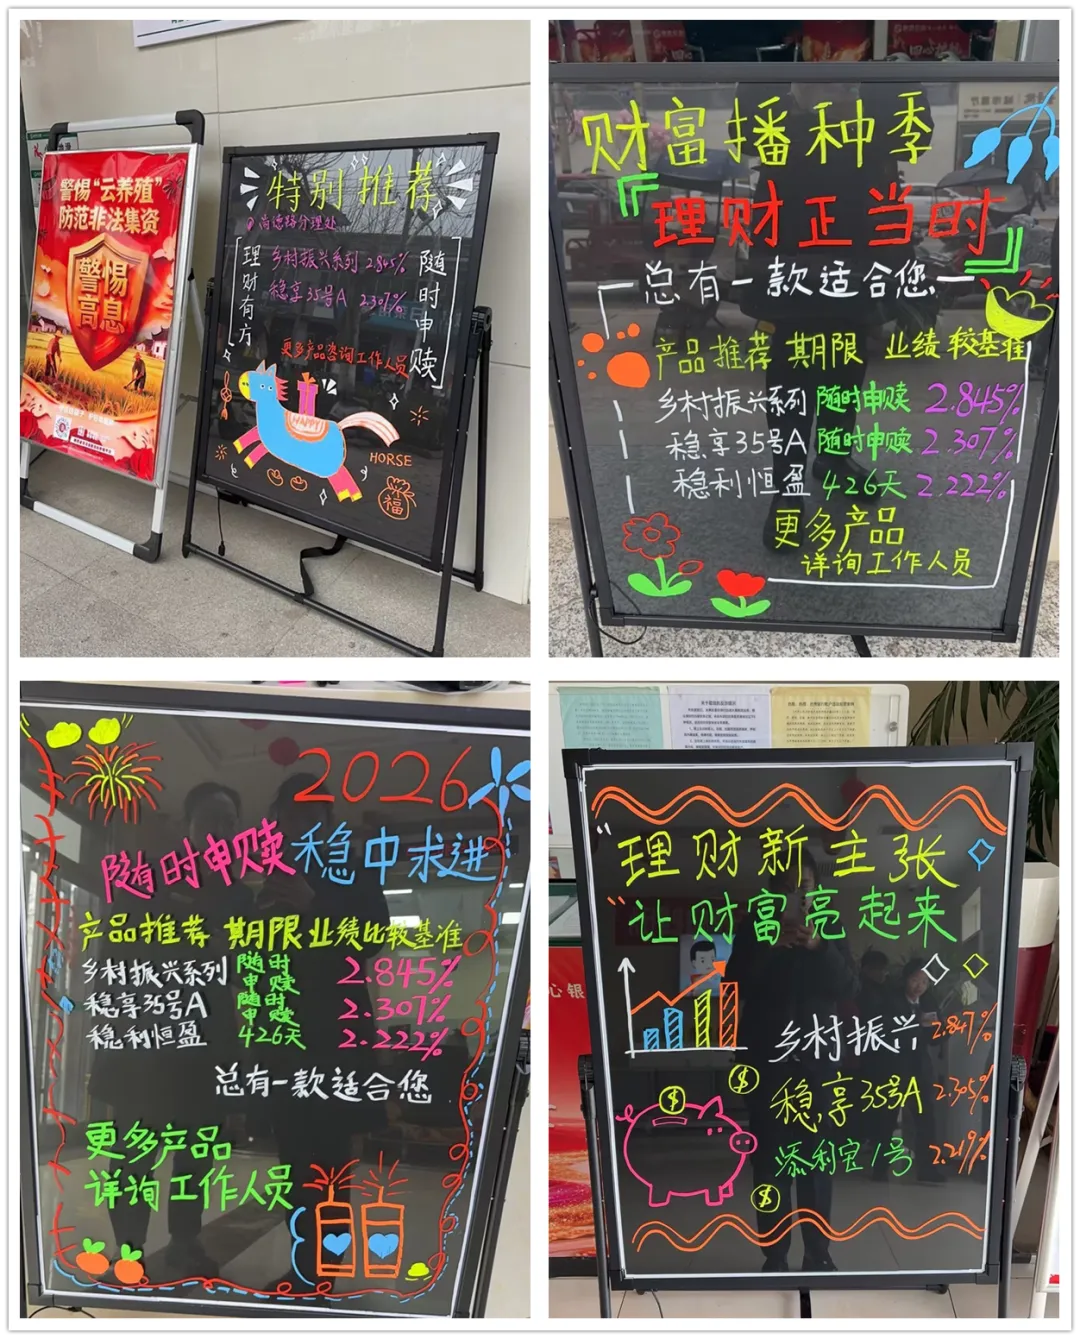 警惕“云养殖”
防范非法集资
警惕
高息
特别推荐
尚德路分理处
理财有方
乡村振兴系列 2.845%
稳享35号A 2.307%
随时申赎
更多产品咨询工作人员
HAPPY
HORSE
福
财富播种季
理财正当时
总有一款适合您
产品推荐 期限 业绩较基准
乡村振兴系列 随时申赎 2.845%
稳享35号A 随时申赎 2.307%
稳利恒盈 426天 2.222%
更多产品
详询工作人员
2026
随时申赎 稳中求进
产品推荐 期限 业绩比较基准
乡村振兴系列 随时申赎 2.845%
稳享35号A 随时申赎 2.307%
稳利恒盈 426天 2.222%
总有一款适合您
更多产品
详询工作人员
“理财新主张
“让财富亮起来
乡村振兴 2.847%
稳享35号A 2.305%
添利宝1号 2.219%